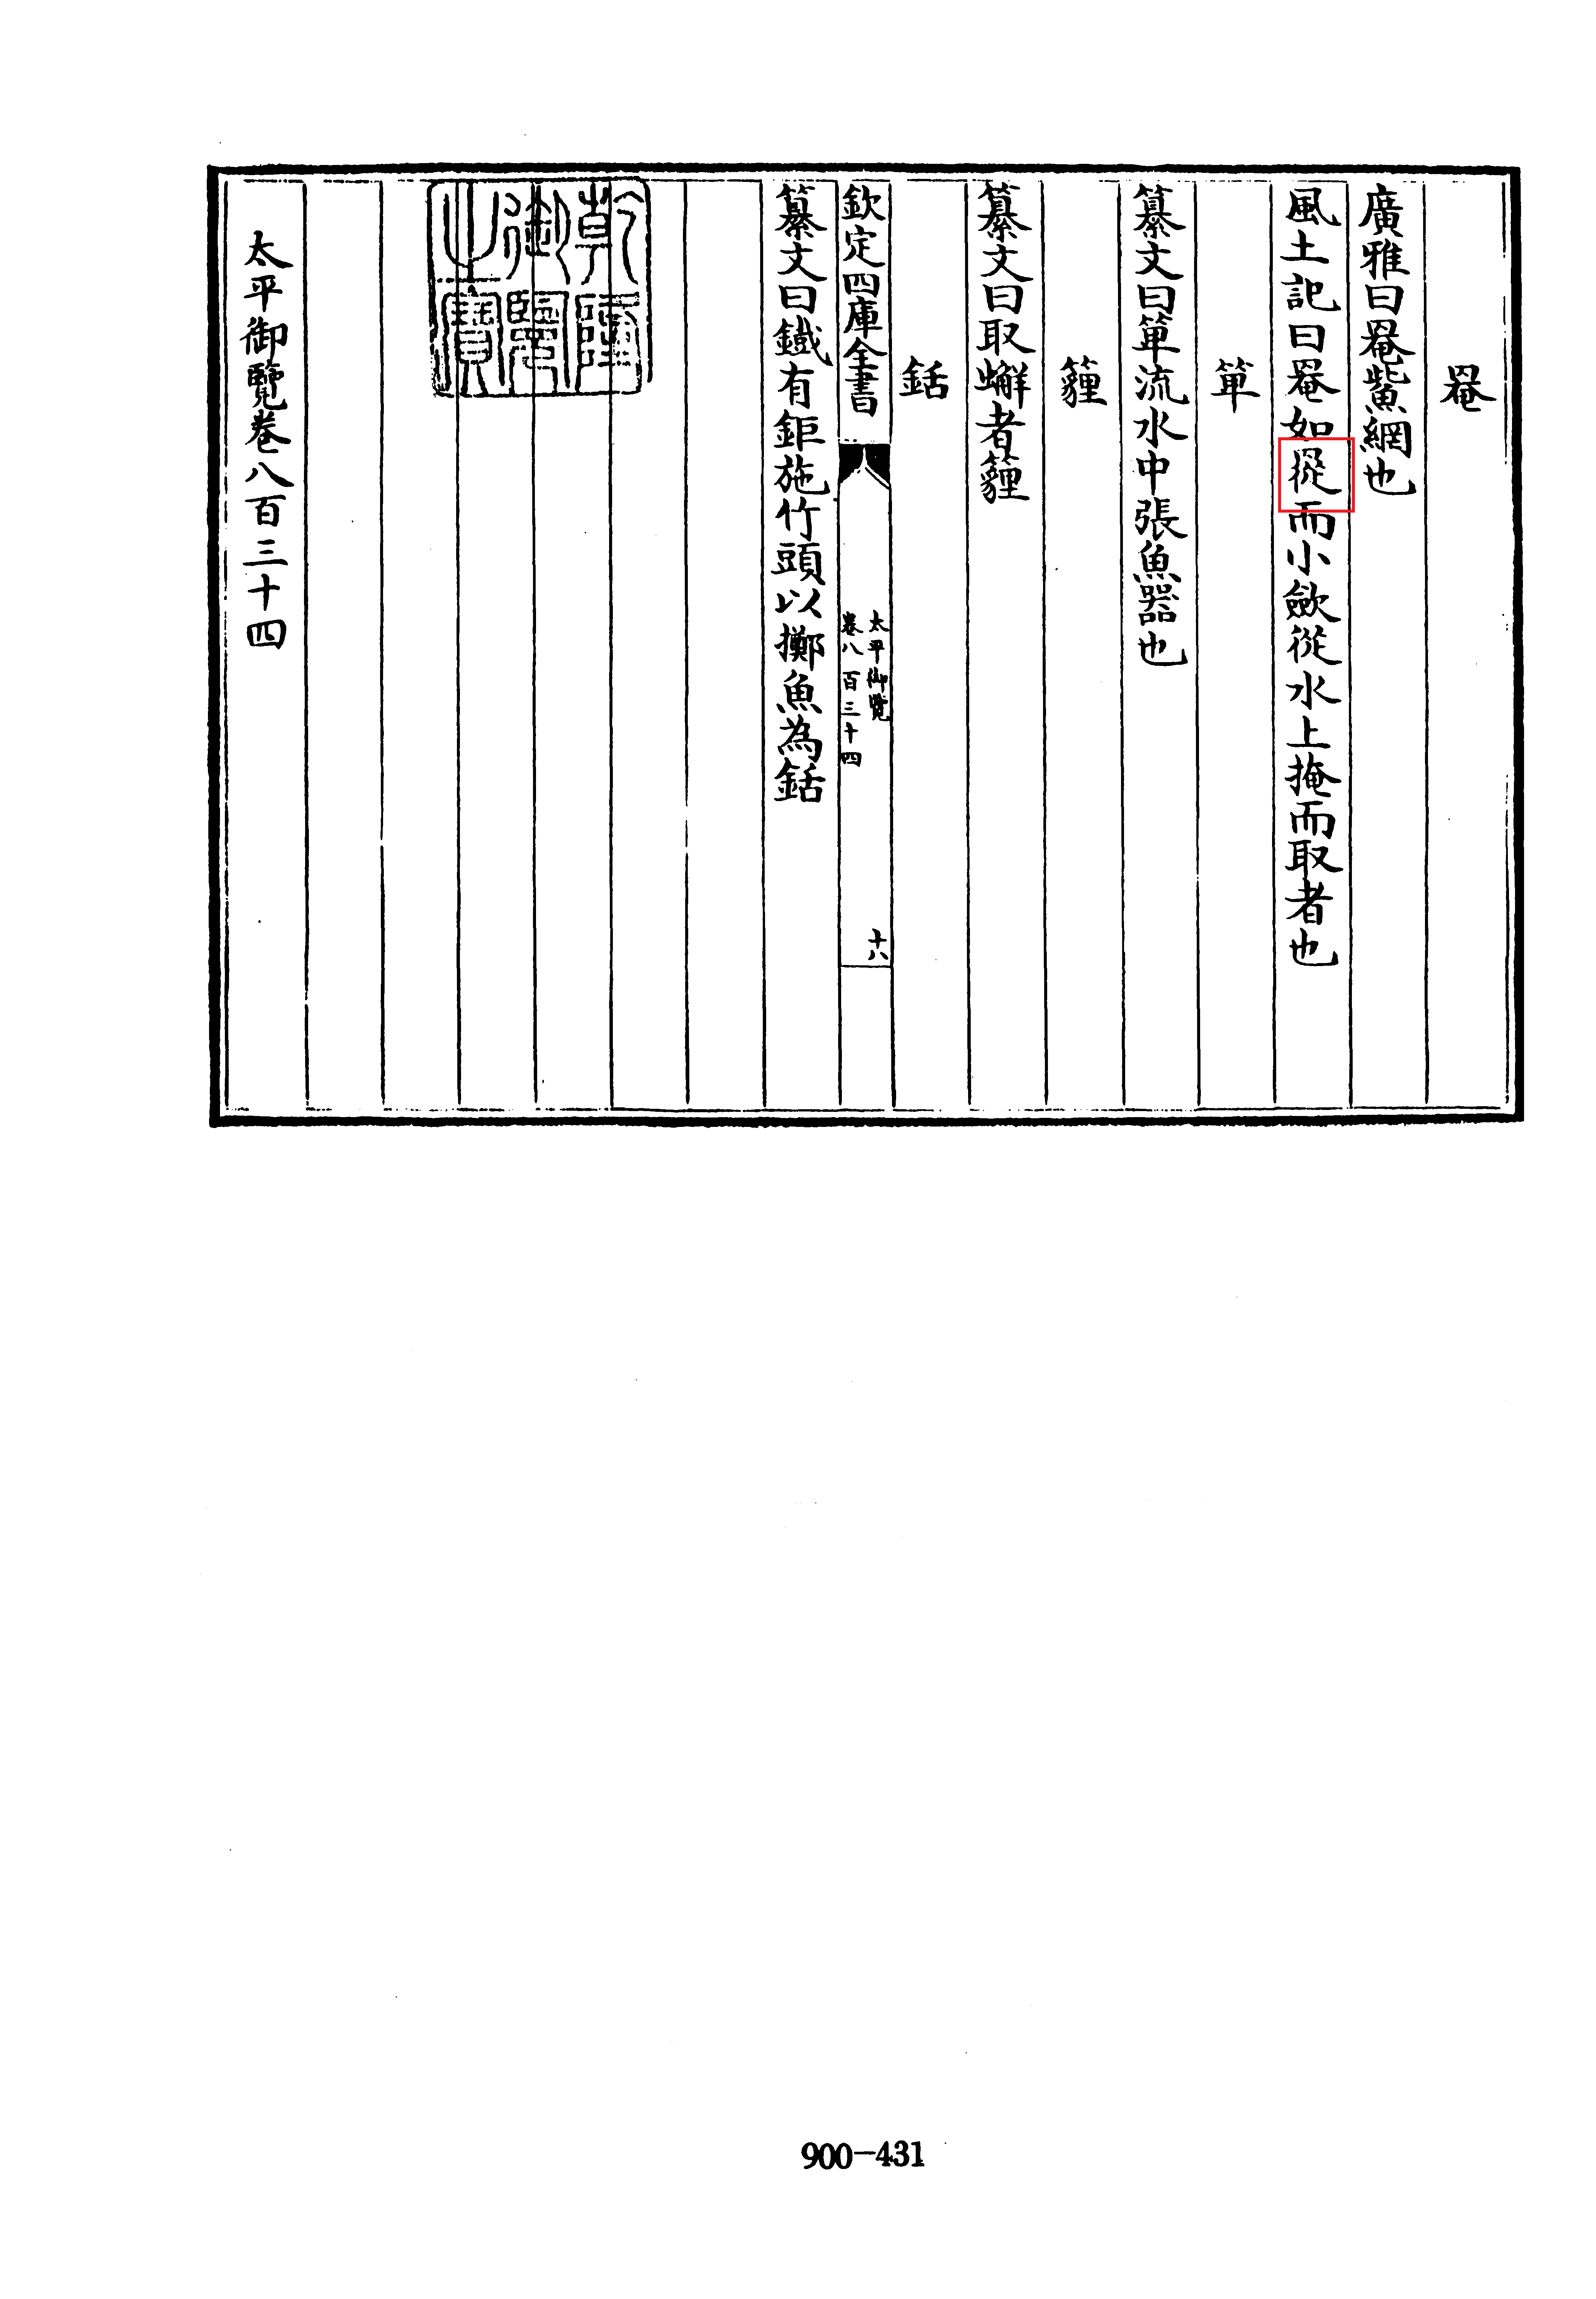 罨
廣雅曰罨鮆網也
風土記曰罨如而小斂從水上掩而取者也
箄
纂文曰箄流水中張魚器也
纂文曰取蠏者
銛
欽定四庫全書
太平御覽
卷八百三十四
十八
纂文曰鐵有鉅施竹頭以擲魚為銛
乾隆
御覽
之寶
太平御覽卷八百三十四
900-431